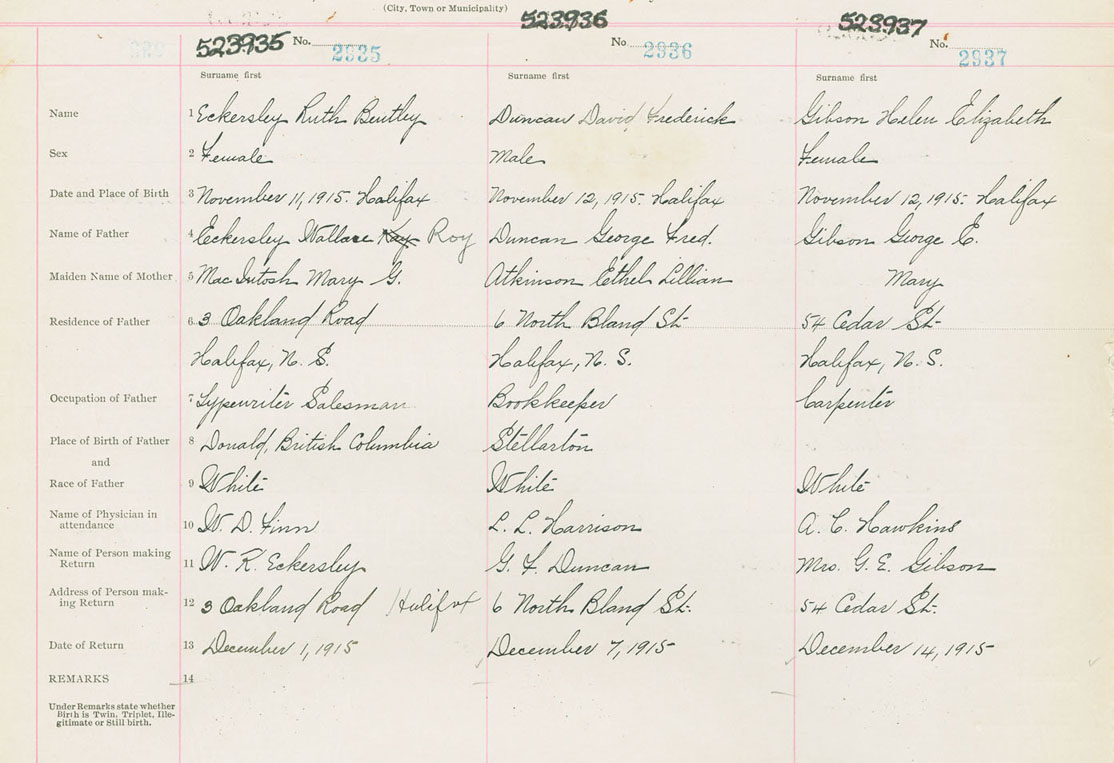 (City, Town or Municipality)
523935 No. 2935 523936 No 2936 523937 No. 2937
Surname first Surname first Surname first
Name 1 Eckersley Ruth Bentley Duncan David Frederick Gibson Helen Elizabeth
Sex 2 Female Male Female
Date and Place of Birth 3 November 11, 1915. Halifax November 12, 1915. Halifax November 12, 1915. Halifax
Name of Father 4 Eckersley Wallace Ray Roy Duncan George Fred. Gibson George E.
Maiden Name of Mother 5 MacIntosh Mary G. Atkinson Ethel Lillian Mary
Residence of Father 6 3 Oakland Road 6 North Bland St. 54 Cedar St.
Halifax, N. S. Halifax, N. S. Halifax, N. S.
Occupation of Father 7 Typewriter Salesman Bookkeeper Carpenter
Place of Birth of Father 8 Donald, British Columbia Stellarton
and
Race of Father 9 White White White
Name of Physician in
attendance 10 W. D. Finn L. L. Harrison A. C. Hawkins
Name of Person making
Return 11 W. R. Eckersley G. F. Duncan Mrs. G. E. Gibson
Address of Person mak-
ing Return 12 3 Oakland Road Halifax 6 North Bland St. 54 Cedar St.
Date of Return 13 December 1, 1915 December 7, 1915 December 14, 1915
REMARKS 14
Under Remarks state whether
Birth is Twin, Triplet, Ille-
gitimate or Still birth.